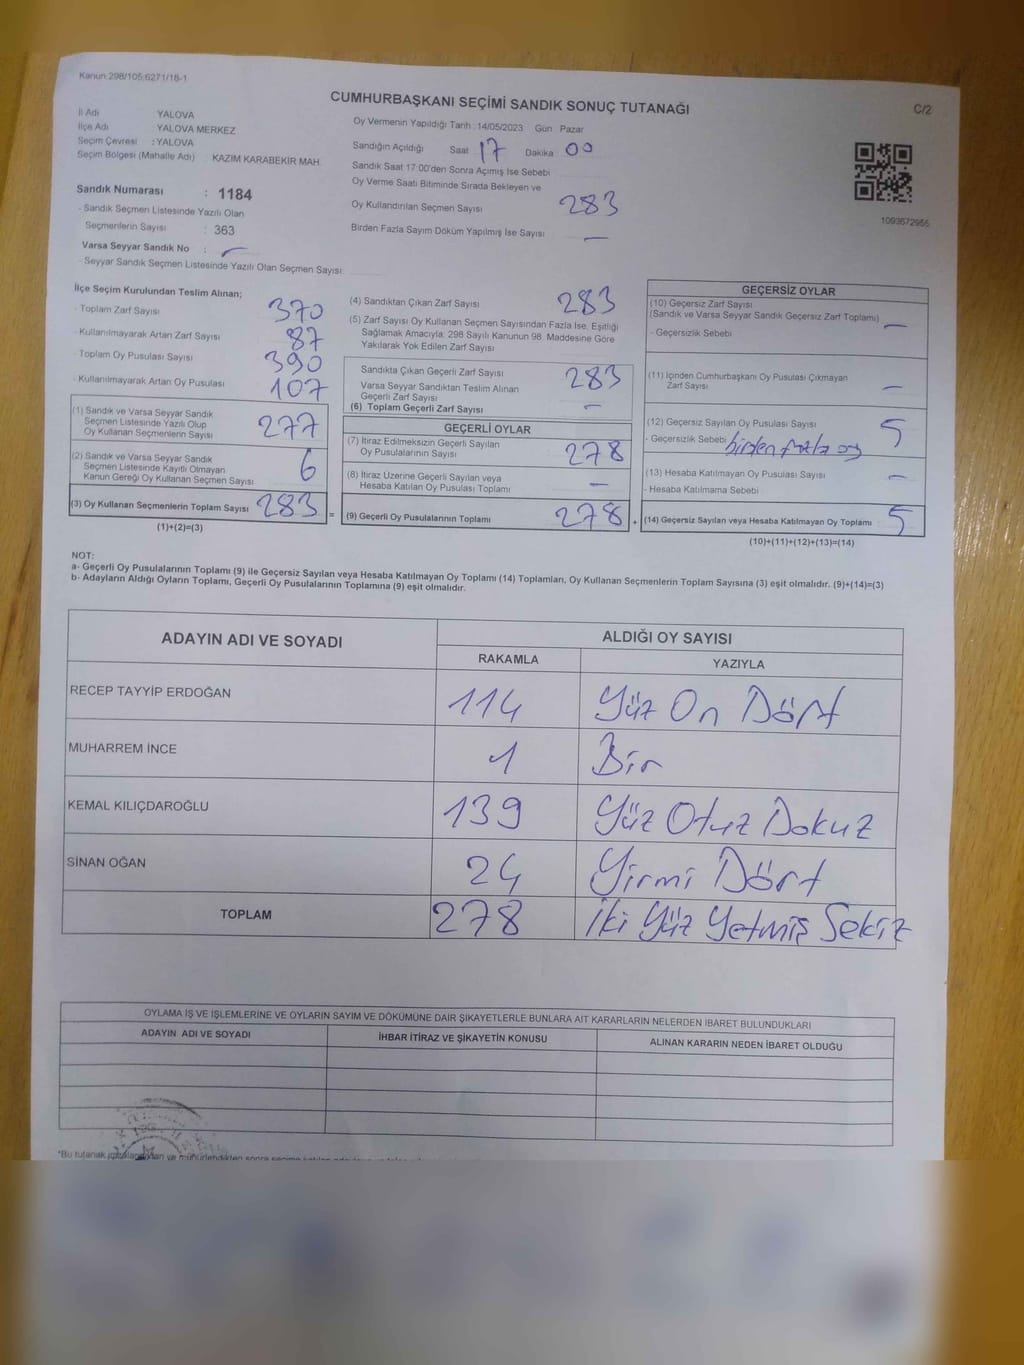 Kanun:298/105;6271/18-1
CUMHURBAŞKANI SEÇİMİ SANDIK SONUÇ TUTANAĞI
C/2
İl Adı YALOVA
İlçe Adı YALOVA MERKEZ
Seçim Çevresi : YALOVA
Seçim Bölgesi (Mahalle Adı) : KAZIM KARABEKİR MAH.
Sandık Numarası : 1184
- Sandık Seçmen Listesinde Yazılı Olan
Seçmenlerin Sayısı : 363
Varsa Seyyar Sandık No : -
- Seyyar Sandık Seçmen Listesinde Yazılı Olan Seçmen Sayısı:
Oy Vermenin Yapıldığı Tarih : 14/05/2023 Gün Pazar
Sandığın Açıldığı Saat 17 Dakika 00
Sandık Saat 17:00'den Sonra Açımış İse Sebebi
Oy Verme Saati Bitiminde Sırada Bekleyen ve
Oy Kullandırılan Seçmen Sayısı 283
Birden Fazla Sayım Döküm Yapılmış İse Sayısı -
1093672955
İlçe Seçim Kurulundan Teslim Alınan;
- Toplam Zarf Sayısı 370
- Kullanılmayarak Artan Zarf Sayısı 87
- Toplam Oy Pusulası Sayısı 390
- Kullanılmayarak Artan Oy Pusulası 107
(1) Sandık ve Varsa Seyyar Sandık
Seçmen Listesinde Yazılı Olup
Oy Kullanan Seçmenlerin Sayısı 277
(2) Sandık ve Varsa Seyyar Sandık
Seçmen Listesinde Kayıtlı Olmayan
Kanun Gereği Oy Kullanan Seçmen Sayısı 6
(3) Oy Kullanan Seçmenlerin Toplam Sayısı 283 =
(1)+(2)=(3)
(4) Sandıktan Çıkan Zarf Sayısı 283
(5) Zarf Sayısı Oy Kullanan Seçmen Sayısından Fazla İse, Eşitliği
Sağlamak Amacıyla; 298 Sayılı Kanunun 98. Maddesine Göre
Yakılarak Yok Edilen Zarf Sayısı
Sandıkta Çıkan Geçerli Zarf Sayısı 283
Varsa Seyyar Sandıktan Teslim Alınan
Geçerli Zarf Sayısı -
(6) Toplam Geçerli Zarf Sayısı
GEÇERLİ OYLAR
(7) İtiraz Edilmeksizin Geçerli Sayılan
Oy Pusulalarının Sayısı 278
(8) İtiraz Üzerine Geçerli Sayılan veya
Hesaba Katılan Oy Pusulası Toplamı -
(9) Geçerli Oy Pusulalarının Toplamı 278 +
GEÇERSİZ OYLAR
(10) Geçersiz Zarf Sayısı
(Sandık ve Varsa Seyyar Sandık Geçersiz Zarf Toplamı) -
- Geçersizlik Sebebi
(11) İçinden Cumhurbaşkanı Oy Pusulası Çıkmayan
Zarf Sayısı -
(12) Geçersiz Sayılan Oy Pusulası Sayısı 5
- Geçersizlik Sebebi birden fazla oy
(13) Hesaba Katılmayan Oy Pusulası Sayısı -
- Hesaba Katılmama Sebebi
(14) Geçersiz Sayılan veya Hesaba Katılmayan Oy Toplamı 5
(10)+(11)+(12)+(13)=(14)
NOT:
a- Geçerli Oy Pusulalarının Toplamı (9) ile Geçersiz Sayılan veya Hesaba Katılmayan Oy Toplamı (14) Toplamları, Oy Kullanan Seçmenlerin Toplam Sayısına (3) eşit olmalıdır. (9)+(14)=(3)
b- Adayların Aldığı Oyların Toplamı, Geçerli Oy Pusulalarının Toplamına (9) eşit olmalıdır.
ADAYIN ADI VE SOYADI ALDIĞI OY SAYISI
RAKAMLA YAZIYLA
RECEP TAYYİP ERDOĞAN 114 Yüz On Dört
MUHARREM İNCE 1 Bir
KEMAL KILIÇDAROĞLU 139 Yüz Otuz Dokuz
SİNAN OĞAN 24 Yirmi Dört
TOPLAM 278 İki Yüz Yetmiş Sekiz
OYLAMA İŞ VE İŞLEMLERİNE VE OYLARIN SAYIM VE DÖKÜMÜNE DAİR ŞİKAYETLERLE BUNLARA AİT KARARLARIN NELERDEN İBARET BULUNDUKLARI
ADAYIN ADI VE SOYADI İHBAR İTİRAZ VE ŞİKAYETİN KONUSU ALINAN KARARIN NEDEN İBARET OLDUĞU
*Bu tutanak